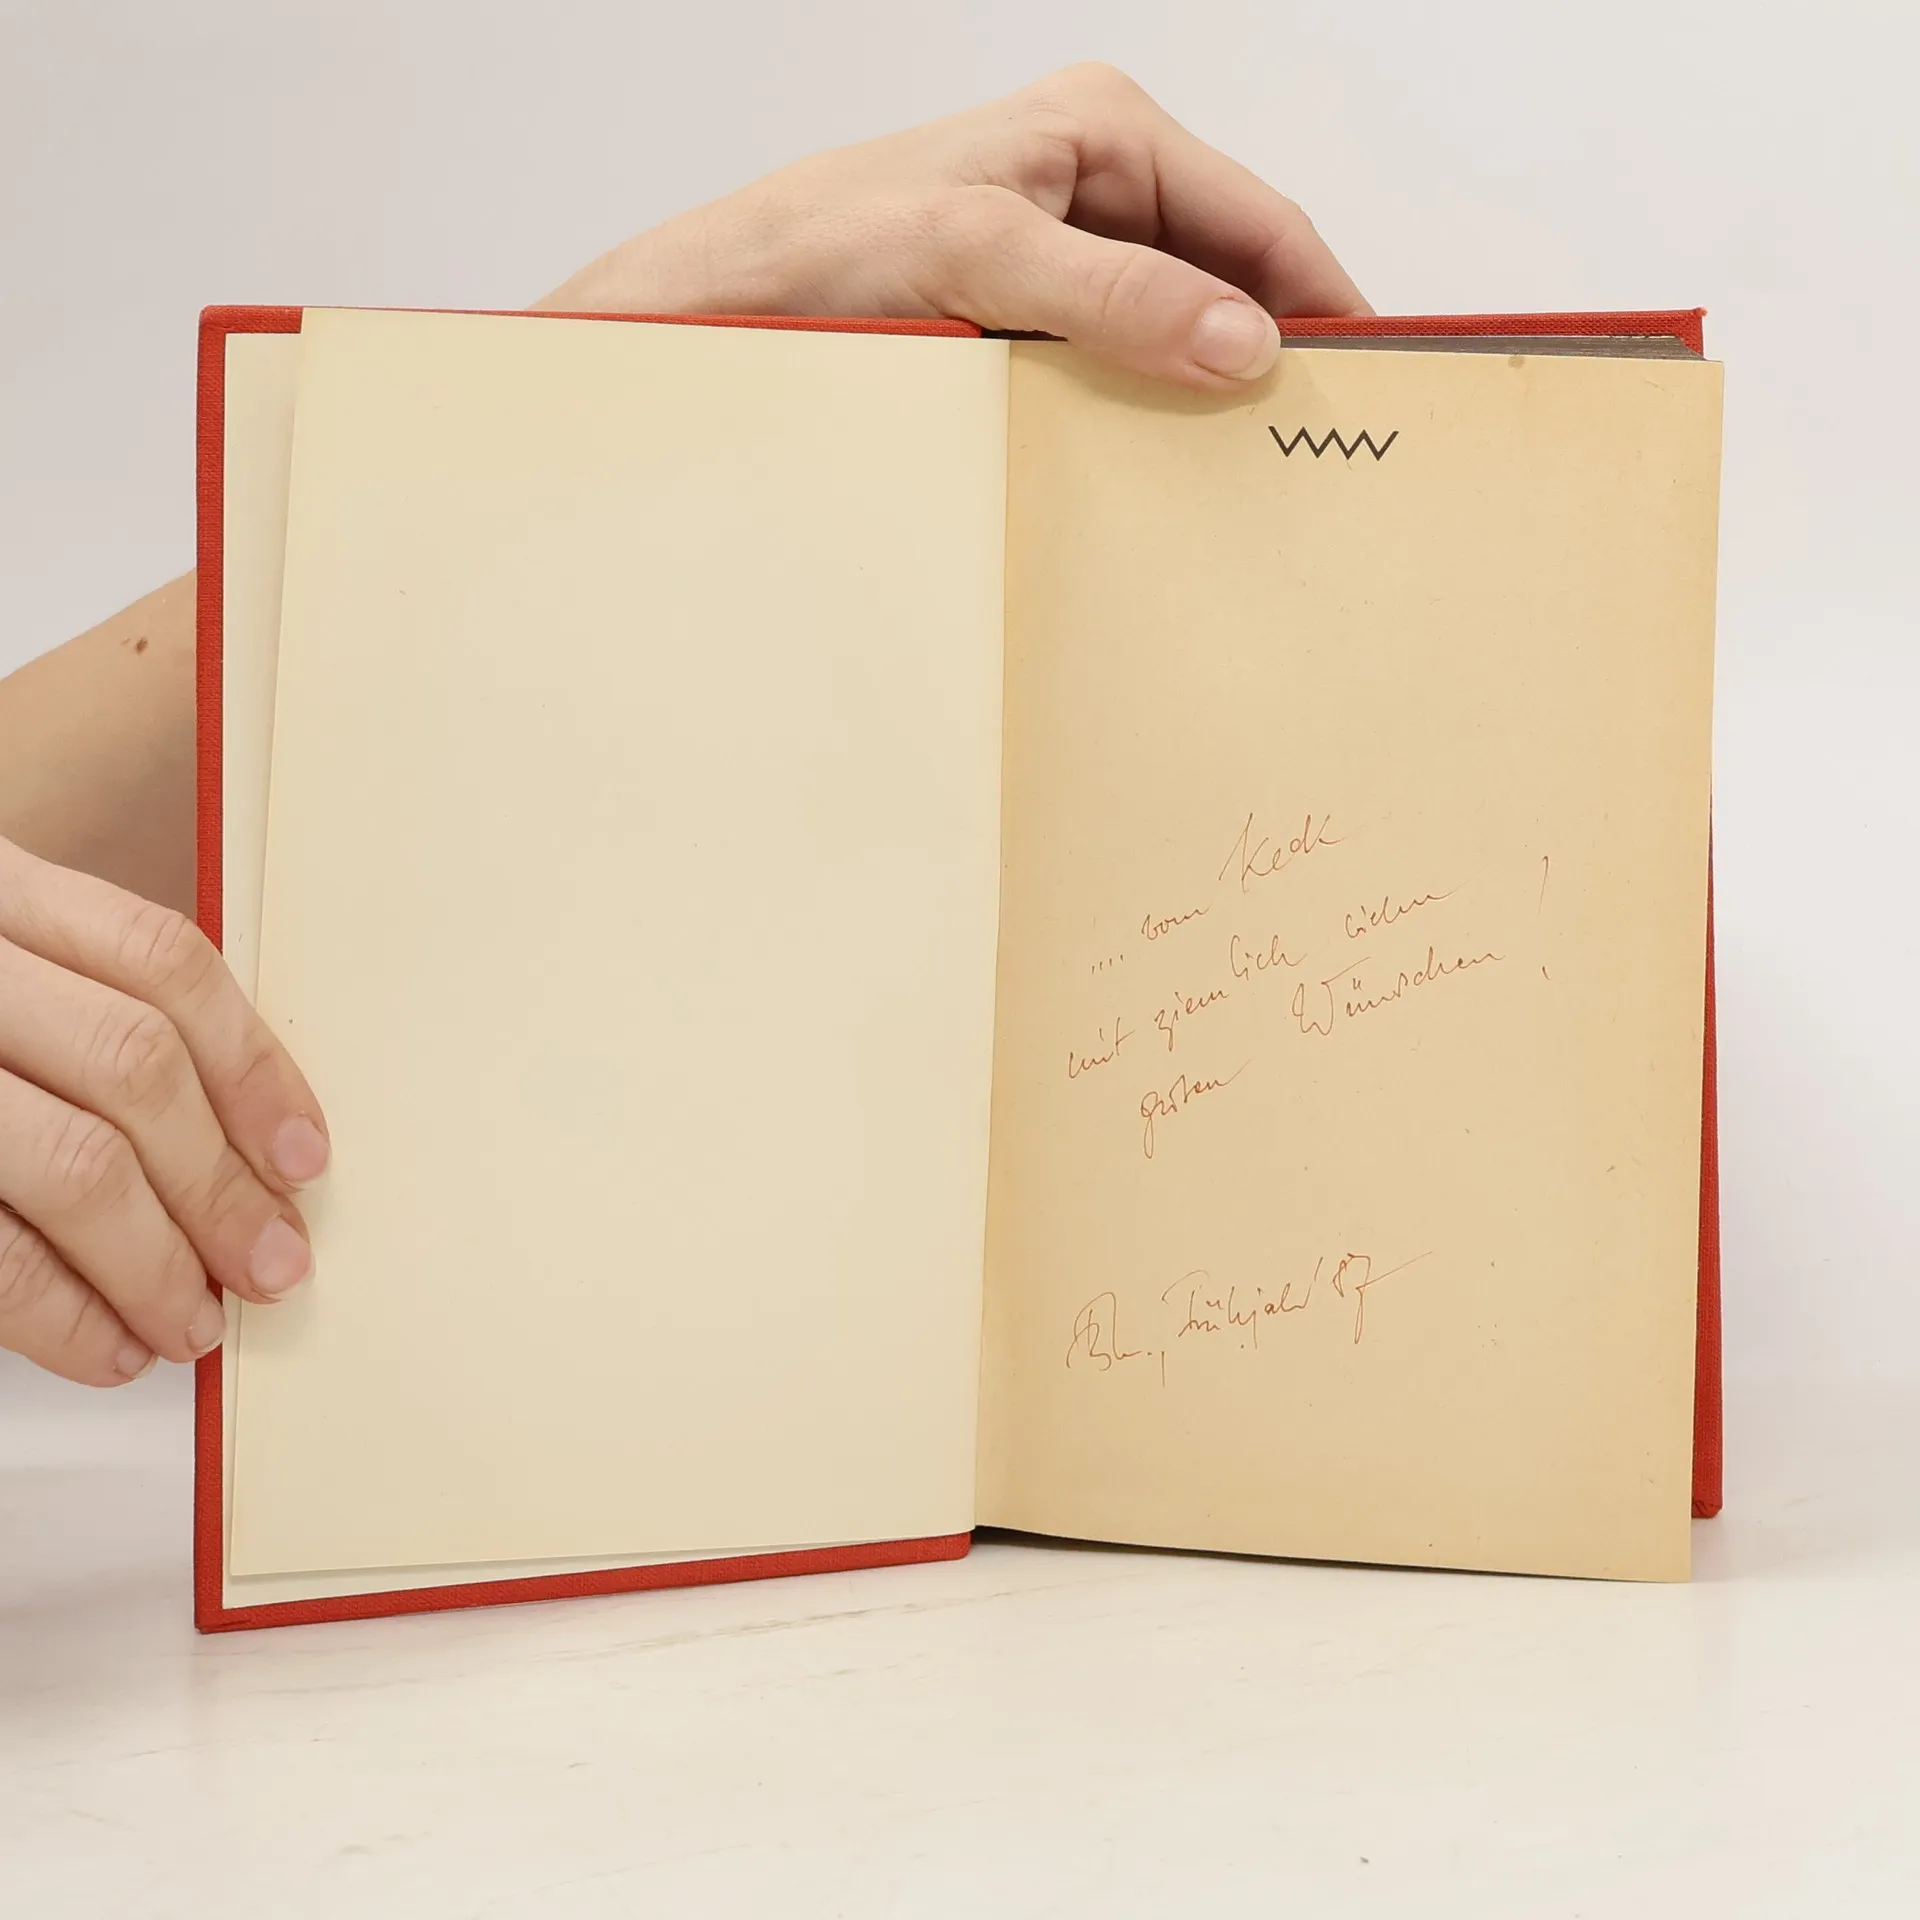 .... vom Keck
mit ziemlich lieben
guten Wünschen !
Bln., Frühjahr '87